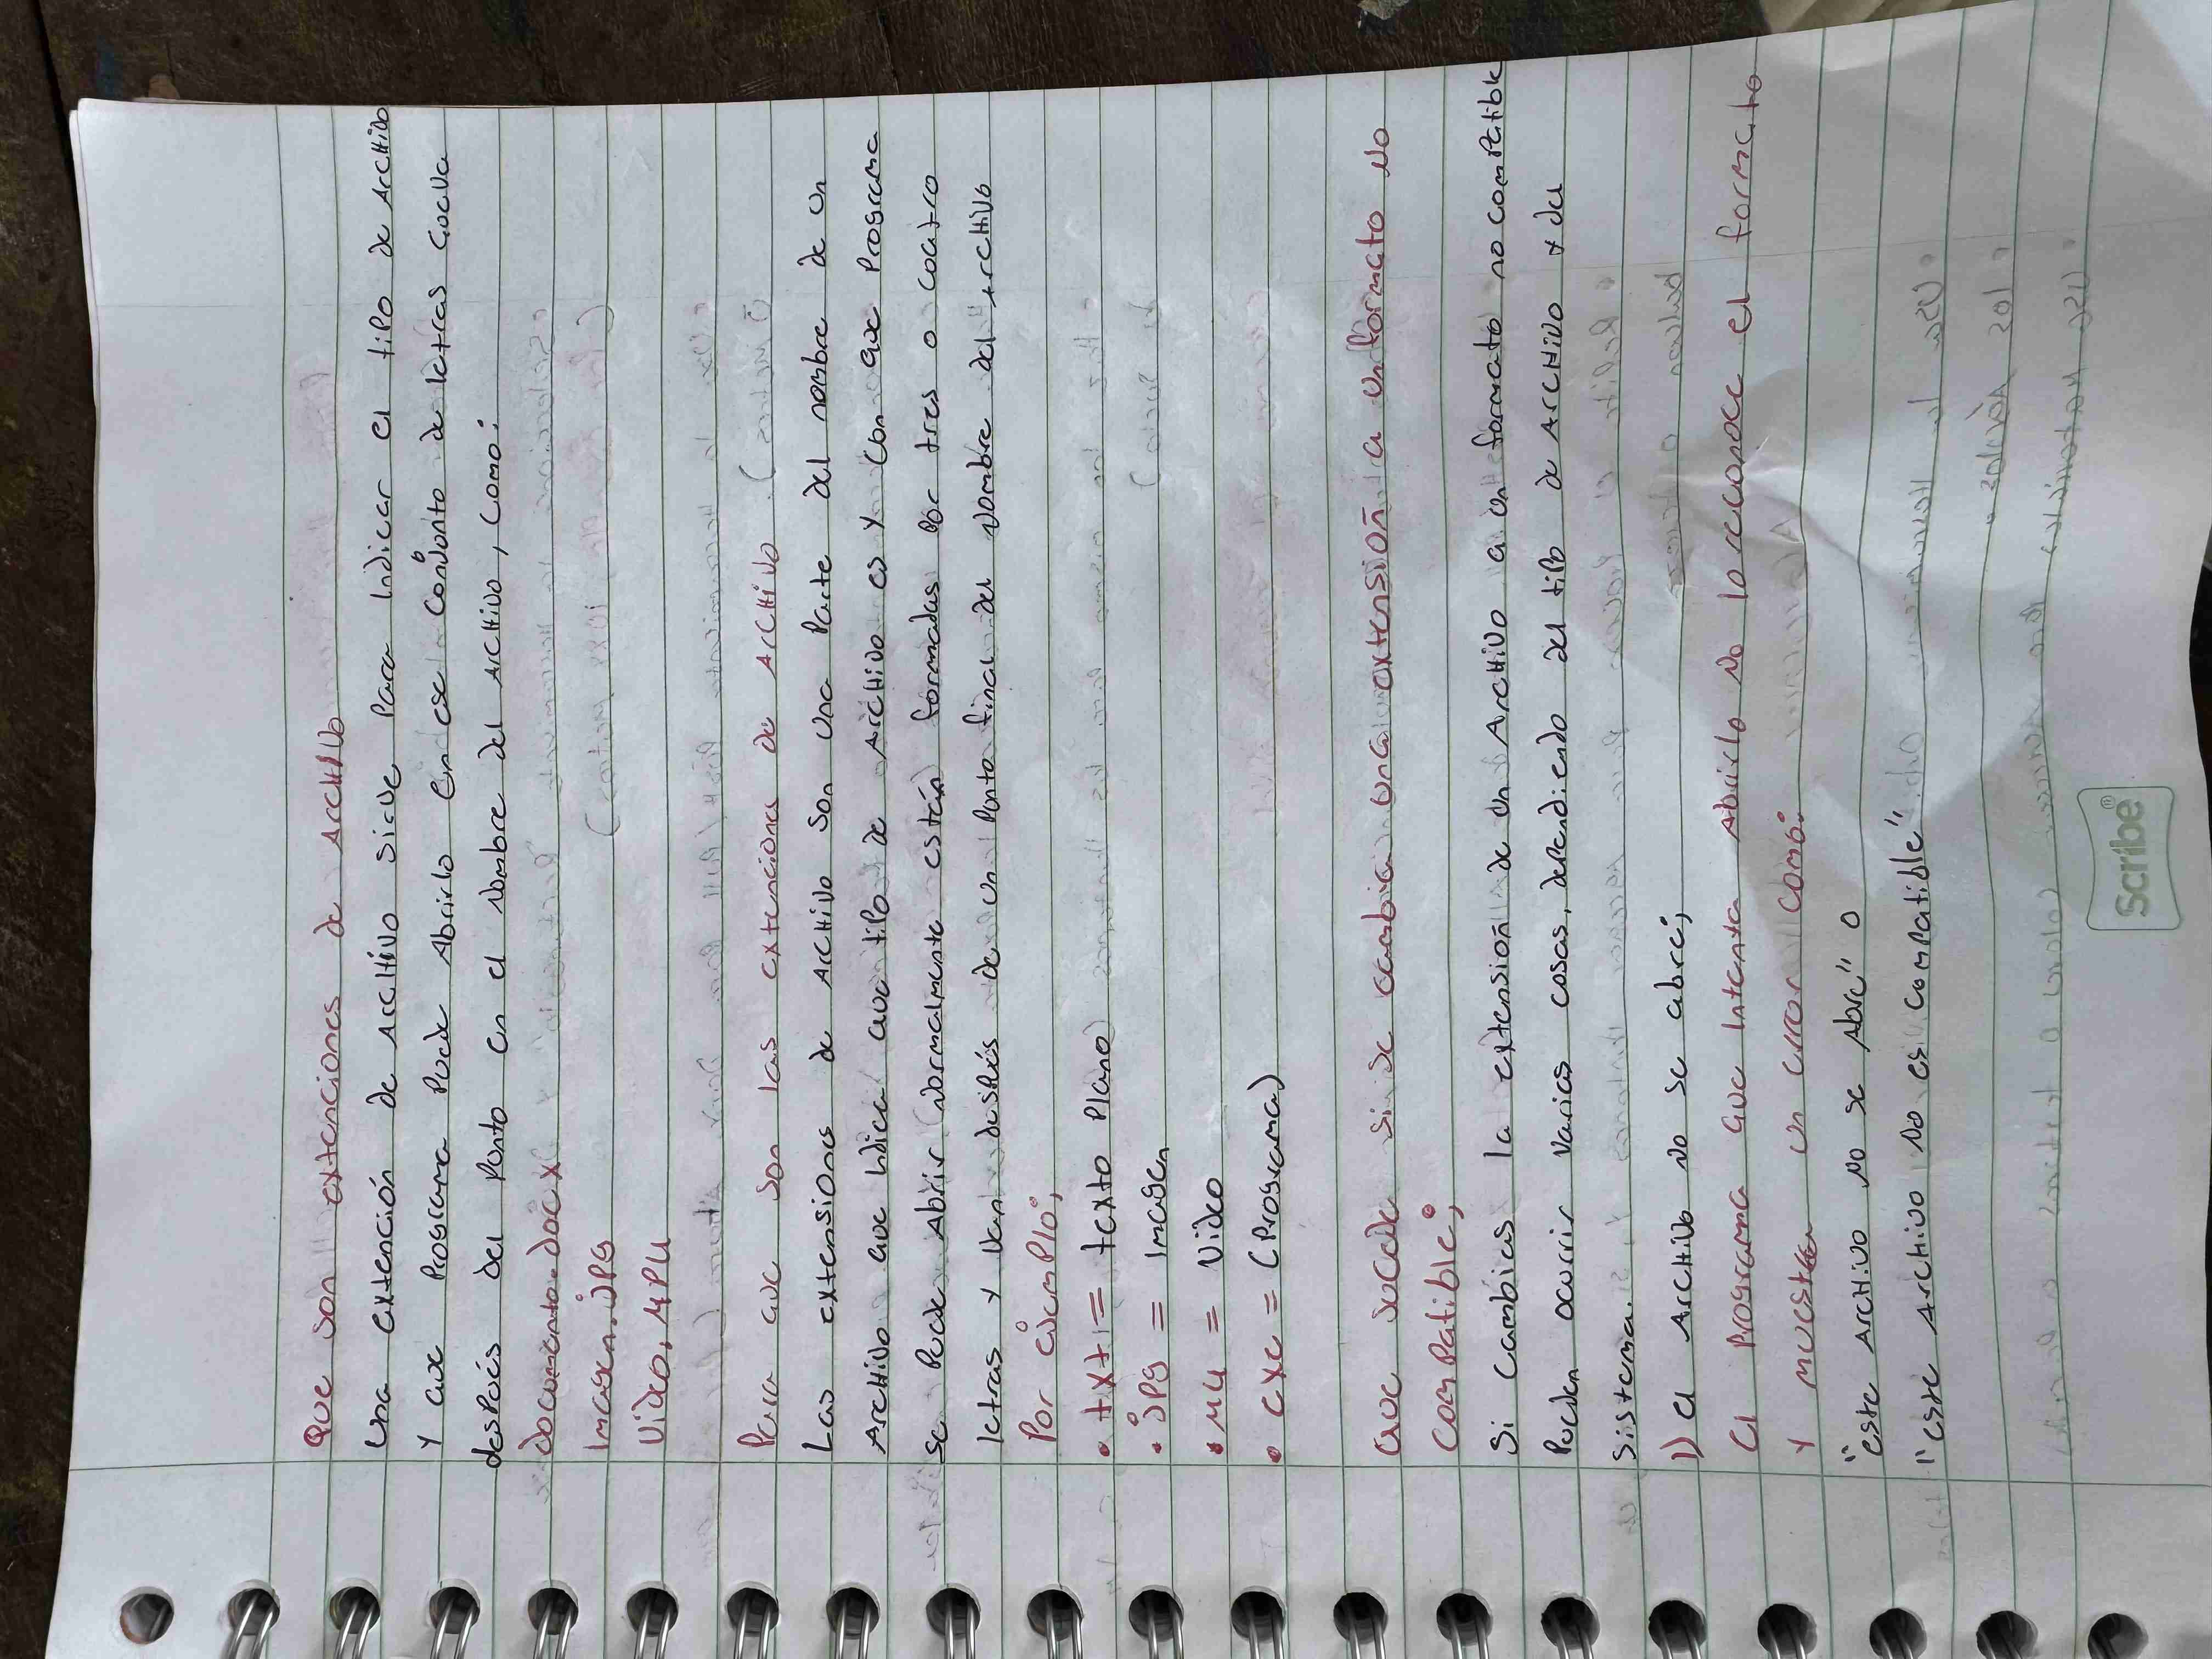 Que son extenciones de Archivo
Una extención de Archivo sirve para Indicar el tipo de Archivo
Y que Programa Puede Abrirlo En ese Conjonto de letras Coeva
después del Ponto en el Nombre del Archivo, Como:
documento.docx
Imagen.JPG
Video, MPU
Para que son las extenciones de Archivo
Las extensiones de Archivo son una Parte del nombre de un
Archivo que Indica que tipo de Archivo es y Con que Programa
se Puede Abrir (Normalmente están formadas Por tres o coatro
letras y van después de un Ponto final del Nombre del Archivo
Por ejemplo;
• txt = texto Plano)
• JPG = Imagen
• MU = Video
• exe = (Programa)
Que Sucede si se cambia una extensión a un formato No
Compatible;
Si Cambias la extensión de un Archivo a un formato no compatible
Pueden ocurrir Varias cosas, dependiendo del tipo de Archivo y del
Sistema.
1) el Archivo No se abre;
El Programa que Intenta Abrirlo No lo reconoce el formato
Y muestra un error Como:
"este Archivo No se Abre" o
"este Archivo No es compatible"
Scribe®